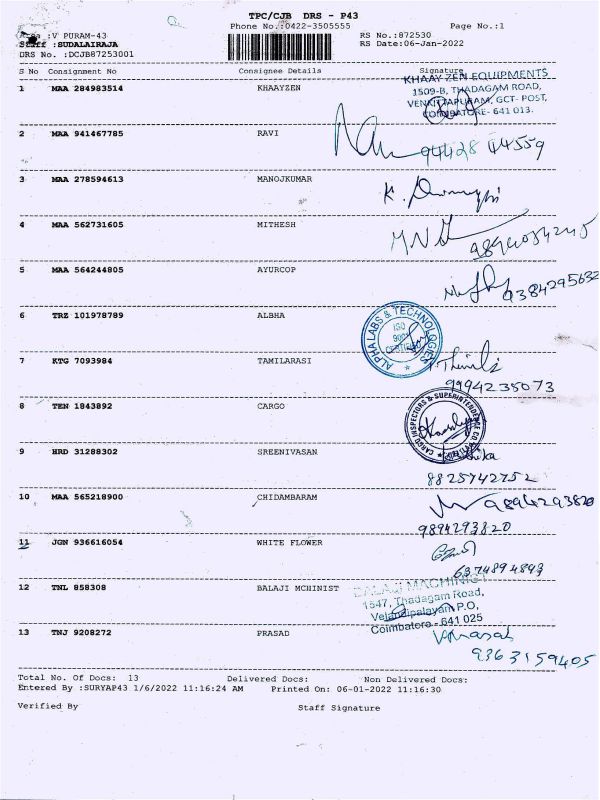 TPC/CJB DRS - P43
Area :V PURAM-43 Phone No.:0422-3505555 Page No.:1
Staff :SUDALAIRAJA RS No.:872530
DRS No. :DCJB87253001 RS Date:06-Jan-2022
S No Consignment No Consignee Details Signature
1 MAA 284983514 KHAAYZEN
KHAAY ZEN EQUIPMENTS
1509-B, THADAGAM ROAD,
VENKITAPURAM, GCT- POST,
COIMBATORE- 641 013.
2 MAA 941467785 RAVI
94428 44559
3 MAA 278594613 MANOJKUMAR
K.
4 MAA 562731605 MITHESH
5 MAA 564244805 AYURCOP
9384295632
6 TRZ 101978789 ALBHA
ALPHA LABS & TECHNOLOGIES
ISO
CERTIFIED
7 KTG 7093984 TAMILARASI
9994235073
8 TEN 1843892 CARGO
CARGO INSPECTORS & SUPERINTENDENCE CO
9 HRD 31288302 SREENIVASAN
8825742752
10 MAA 565218900 CHIDAMBARAM
9894293820
9894293820
11 JGN 936616054 WHITE FLOWER
6374894843
12 TNL 858308 BALAJI MCHINIST
BALAJI MACHINIST
1547, Thadagam Road,
Velandipalayam P.O,
Coimbatore - 641 025
13 TNJ 9208272 PRASAD
V.Prasad
9363159405
Total No. Of Docs: 13 Delivered Docs: Non Delivered Docs:
Entered By :SURYAP43 1/6/2022 11:16:24 AM Printed On: 06-01-2022 11:16:30
Verified By Staff Signature